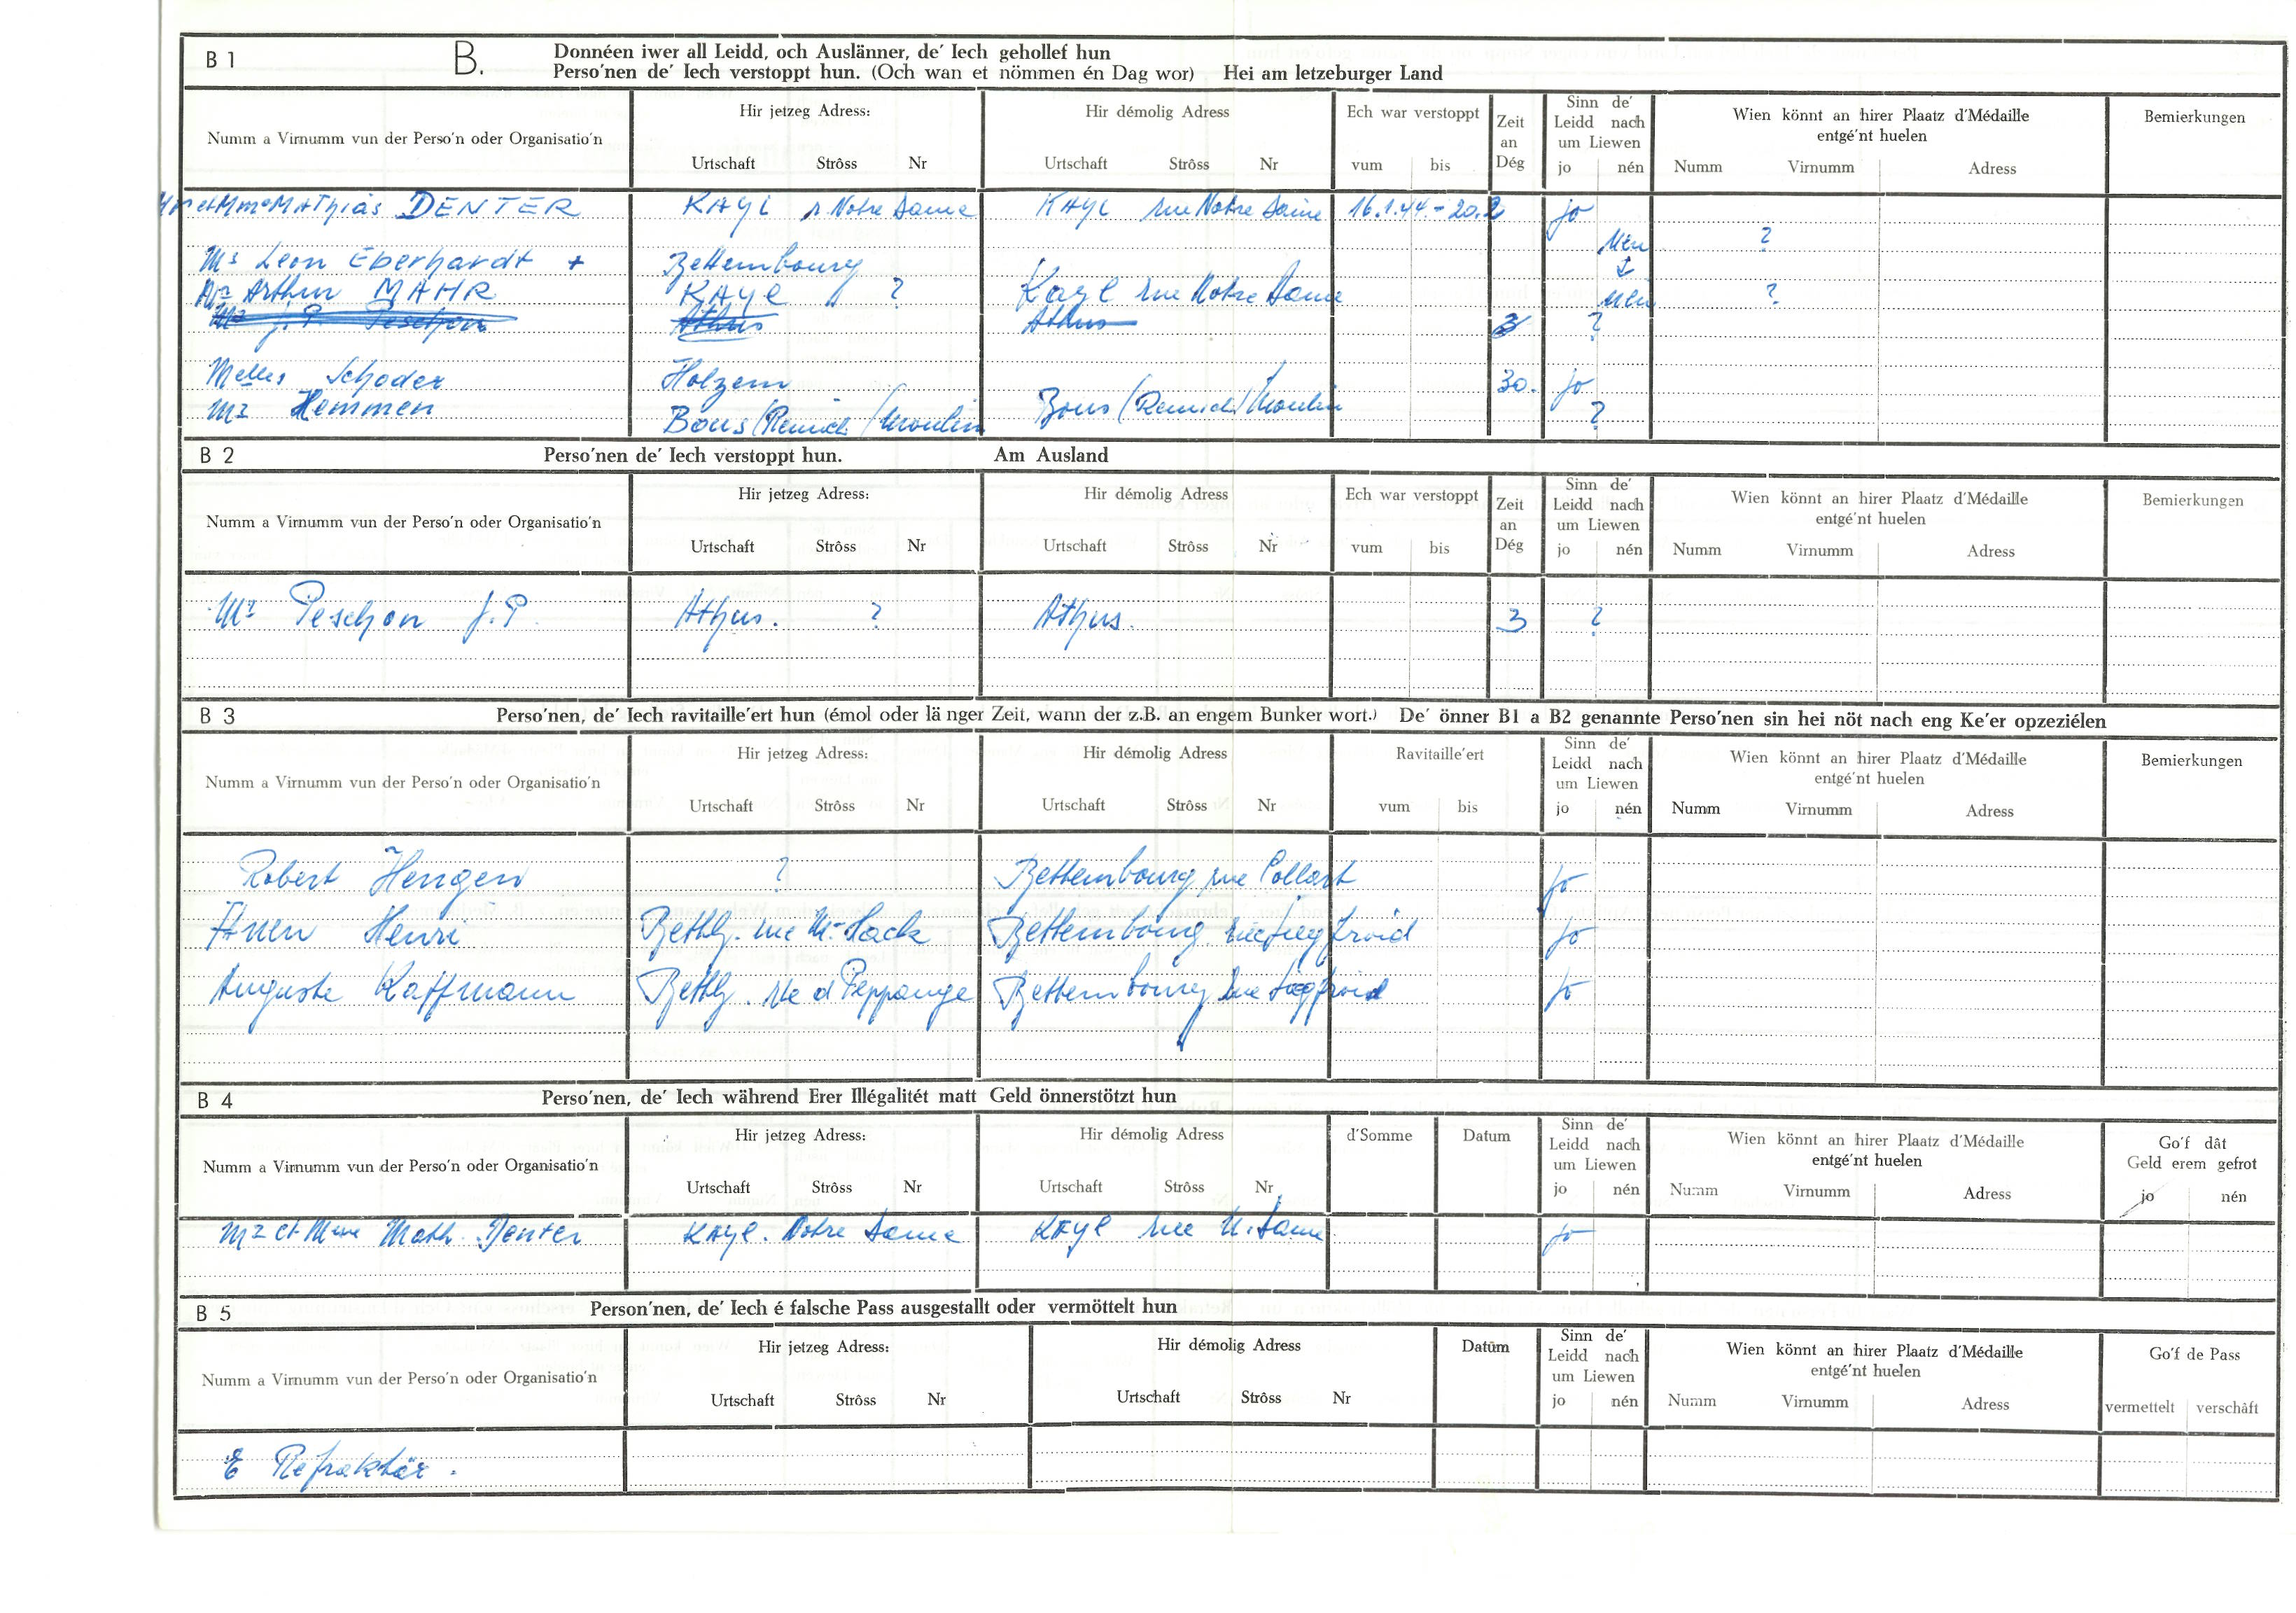 B 1 B. Donnéen iwer all Leidd, och Auslänner, de′ Iech gehollef hun
Perso′nen de′ Iech verstoppt hun. (Och wan et nömmen én Dag wor) Hei am letzeburger Land
Numm a Virnumm vun der Perso′n oder Organisatio′n Hir jetzeg Adress: Hir démolig Adress Ech war verstoppt Zeit an Dég Sinn de′ Leidd nach um Liewen Wien könnt an hirer Plaatz d′Médaille entgé′nt huelen Bemierkungen
Urtschaft Strôss Nr Urtschaft Strôss Nr vum bis jo nén Numm Virnumm Adress
Mr et Mme MAThias DENTER KAYL r Notre Dame KAYL rue Notre Dame 16.1.44 - 20.2 jo
Mr Leon Eberhardt + Bettembourg Nén ?
Mr Arthur MAHR KAYL ? Kayl rue Notre Dame nén ?
Mr J.P. Peschon Athus Athus 3 ?
Melles Schoder Holzem 30. jo
Mr Hemmen Bous/Remich/Moulin Bous/Remich/Moulin ?
B 2 Perso′nen de′ Iech verstoppt hun. Am Ausland
Numm a Virnumm vun der Perso′n oder Organisatio′n Hir jetzeg Adress: Hir démolig Adress Ech war verstoppt Zeit an Dég Sinn de′ Leidd nach um Liewen Wien könnt an hirer Plaatz d′Médaille entgé′nt huelen Bemierkungen
Urtschaft Strôss Nr Urtschaft Strôss Nr vum bis jo nén Numm Virnumm Adress
Mr Peschon J.P. Athus. ? Athus. 3 ?
B 3 Perso′nen, de′ Iech ravitaille′ert hun (émol oder lä nger Zeit, wann der z.B. an engem Bunker wort.) De′ önner B1 a B2 genannte Perso′nen sin hei nöt nach eng Ke′er opzeziélen
Numm a Virnumm vun der Perso′n oder Organisatio′n Hir jetzeg Adress: Hir démolig Adress Ravitaille′ert Sinn de′ Leidd nach um Liewen Wien könnt an hirer Plaatz d′Médaille entgé′nt huelen Bemierkungen
Urtschaft Strôss Nr Urtschaft Strôss Nr vum bis jo nén Numm Virnumm Adress
Robert Hengen ? Bettembourg rue Collart jo
Anen Henri Bettbg. rue M. Hack Bettembourg rue Siegfroid jo
Auguste Kaffmann Bettbg. rte d Peppange Bettembourg rue Siegfroid jo
B 4 Perso′nen, de′ Iech während Erer Illégalitét matt Geld önnerstötzt hun
Numm a Virnumm vun der Perso′n oder Organisatio′n Hir jetzeg Adress: Hir démolig Adress d′Somme Datum Sinn de′ Leidd nach um Liewen Wien könnt an hirer Plaatz d′Médaille entgé′nt huelen Go′f dât Geld erem gefrot
Urtschaft Strôss Nr Urtschaft Strôss Nr jo nén Numm Virnumm Adress jo nén
Mr et Mme Math. Denter KAYL. Notre Dame KAYL rue N. Dame jo
B 5 Person′nen, de′ Iech é falsche Pass ausgestallt oder vermöttelt hun
Numm a Virnumm vun der Perso′n oder Organisatio′n Hir jetzeg Adress: Hir démolig Adress Datum Sinn de′ Leidd nach um Liewen Wien könnt an hirer Plaatz d′Médaille entgé′nt huelen Go′f de Pass
Urtschaft Strôss Nr Urtschaft Strôss Nr jo nén Numm Virnumm Adress vermettelt verschâft
E Refraktär.